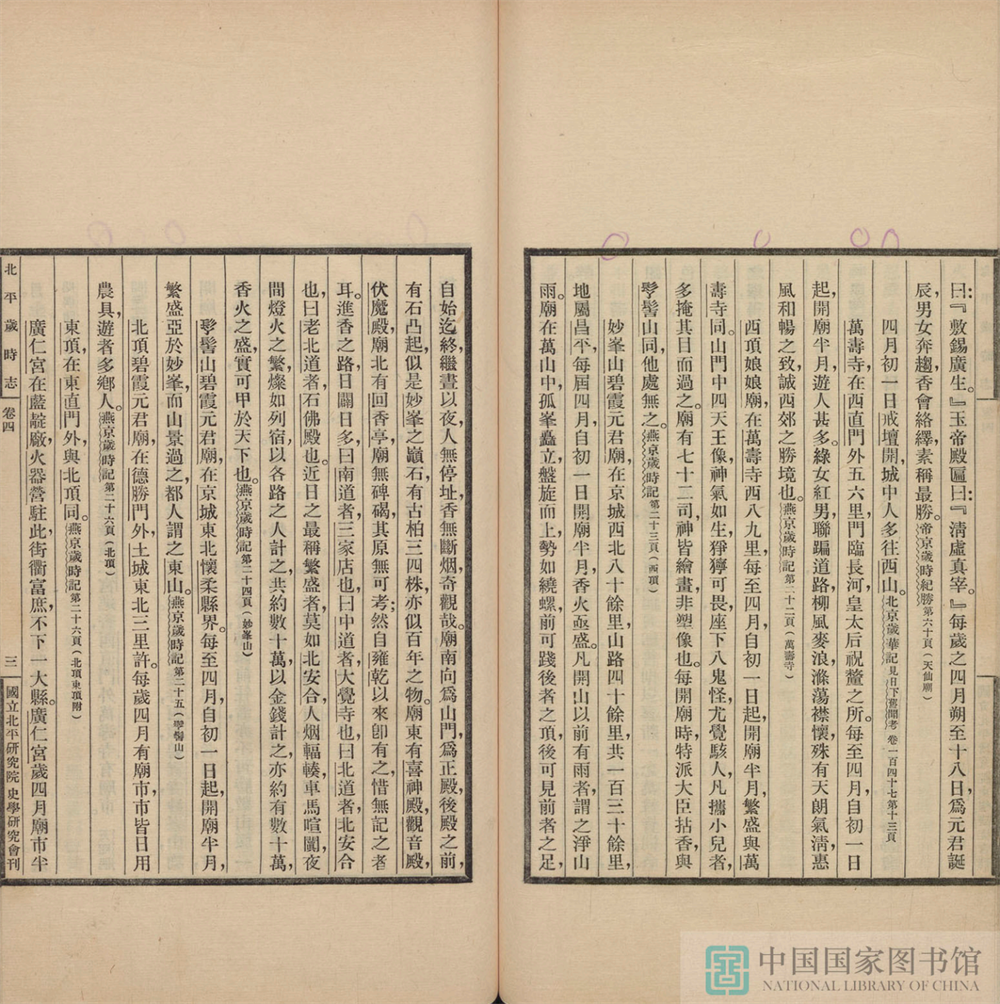 曰：『敷錫廣生。』玉帝殿匾曰：『清虛真宰。』每歲之四月朔至十八日，爲元君誕
辰，男女奔趨，香會絡繹，素稱最勝。帝京歲時紀勝第六十頁（天仙廟）
四月初一日戒壇開，城中人多往西山。北京歲華記見日下舊聞考 卷一百四十七第十三頁
萬壽寺在西直門外五六里，門臨長河，皇太后祝釐之所。每至四月，自初一日
起，開廟半月，遊人甚多。綠女紅男，聯騙道路，柳風麥浪，滌蕩襟懷，殊有天朗氣清，惠
風和暢之致，誠西郊之勝境也。燕京歲時記第二十二頁（萬壽寺）
西頂娘娘廟，在萬壽寺西八九里，每至四月，自初一日起，開廟半月，繁盛與萬
壽寺同。山門中四天王像，神氣如生，猙獰可畏，座下八鬼怪，尤覺駭人，凡攜小兒者，
多掩其目而過之。廟有七十二司，神皆繪畫，非塑像也。每開廟時，特派大臣拈香，與
髽髻山同，他處無之。燕京歲時記第二十三頁（西頂）
妙峯山碧霞元君廟，在京城西北八十餘里，山路四十餘里，共一百三十餘里，
地屬昌平，每屆四月，自初一日開廟半月，香火亟盛。凡開山以前有雨者，謂之淨山
雨。廟在萬山中，孤峯矗立，盤旋而上，勢如繞螺，前可踐後者之頂，後可見前者之足，
自始迄終，繼晝以夜，人無停址，香無斷烟，奇觀哉。廟南向，爲山門，爲正殿，後殿之前，
有石凸起，似是妙峯之巔石，有古柏三四株，亦似百年之物。廟東有喜神殿，觀音殿，
伏魔殿，廟北有回香亭，廟無碑碣，其原無可考；然自雍乾以來卽有之，惜無記之者
耳。進香之路，日闢日多，曰南道者，三家店也，曰中道者，大覺寺也，曰北道者，北安合
也，曰老北道者，石佛殿也。近日之最稱繁盛者，莫如北安合，人烟輻輳，車馬喧闐，夜
間燈火之繁，燦如列宿，以各路之人計之，共約數十萬，以金錢計之，亦約有數十萬，
香火之盛，實可甲於天下也。燕京歲時記第二十四頁（妙峯山）
髽髻山碧霞元君廟，在京城東北懷柔縣界。每至四月，自初一日起，開廟半月，
繁盛亞於妙峯，而山景過之，都人謂之東山。燕京歲時記第二十五（髽髻山）
北頂碧霞元君廟，在德勝門外，土城東北三里許。每歲四月有廟市，市皆日用
農具，遊者多鄉人。燕京歲時記第二十六頁（北頂）
東頂在東直門外，與北頂同。燕京歲時記第二十六頁（北頂東頂附）
廣仁宮在藍靛廠，火器營駐此，街衢富庶，不下一大縣。廣仁宮歲四月廟市半
北平歲時志 卷四 三 國立北平研究院史學研究會刊
中国国家图书馆
NATIONAL LIBRARY OF CHINA